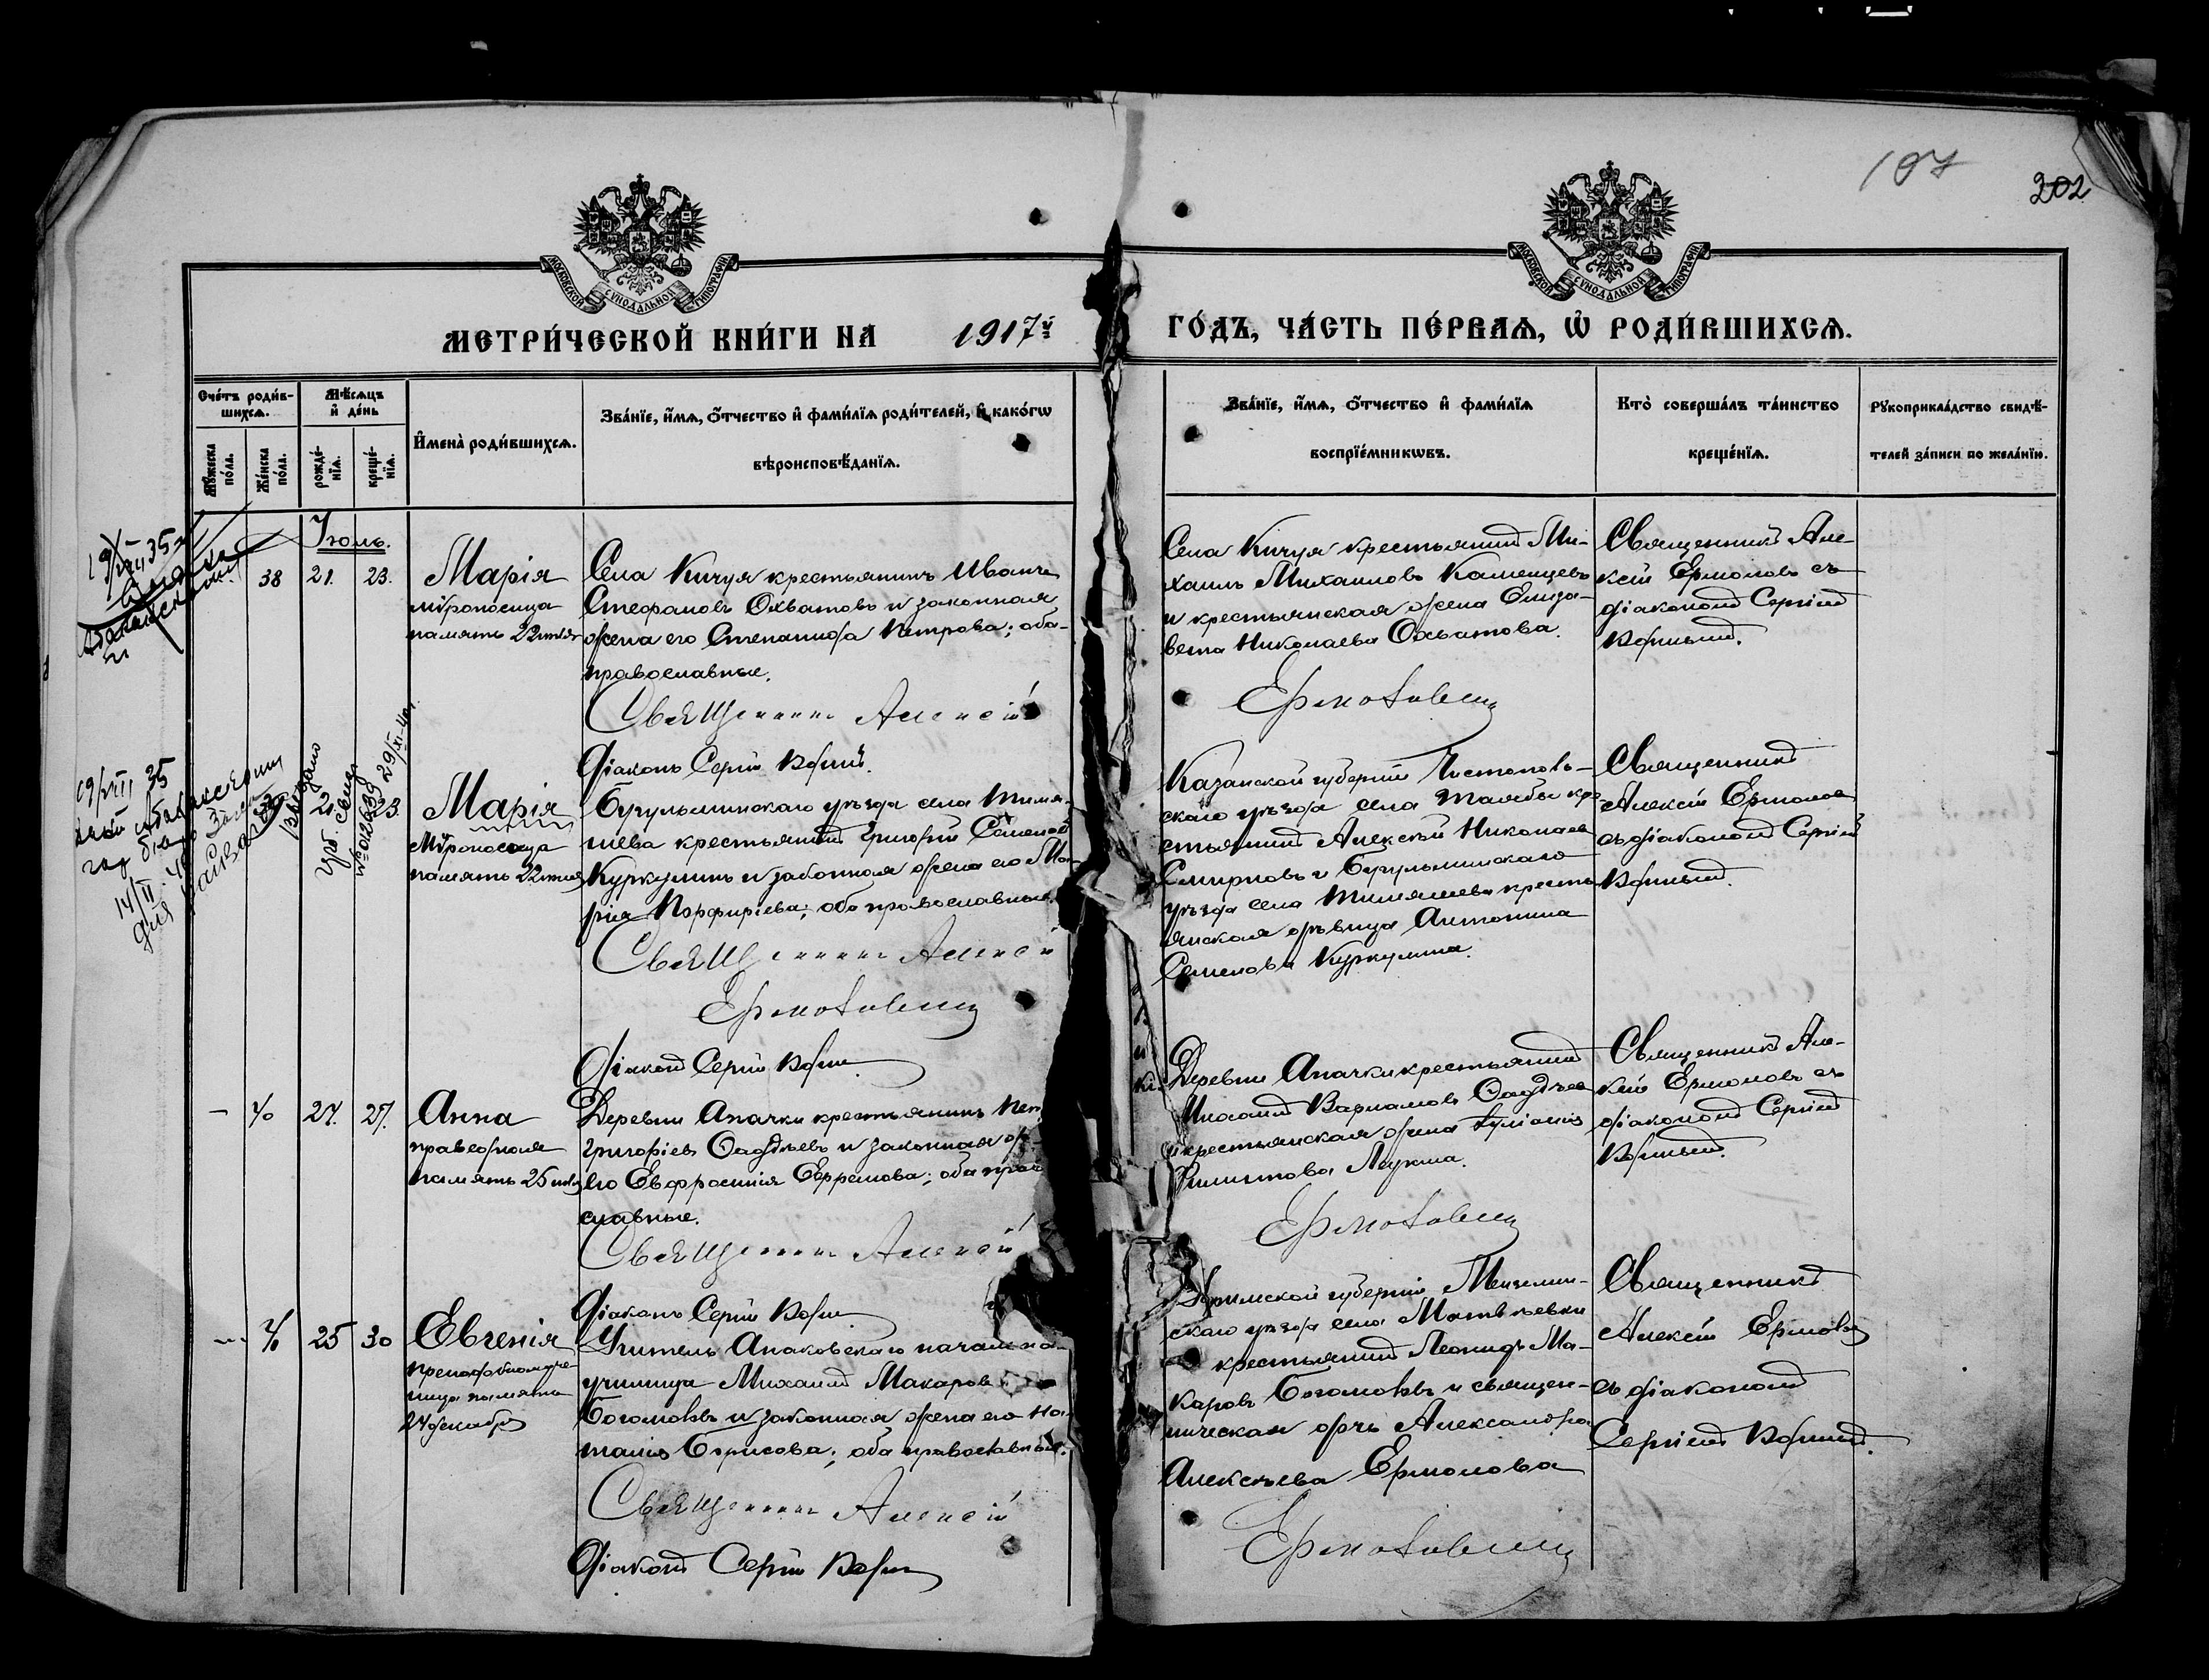 197
202
МОСКОВСКОЙ СѴНОДАЛЬНОЙ ТИПОГРАФІИ
МОСКОВСКОЙ СѴНОДАЛЬНОЙ ТИПОГРАФІИ
МЕТРИ́ЧЕСКОЙ КНИ́ГИ НА 1917й
ГО́ДЪ, ЧА́СТЬ ПЕ́РВАѦ, Ѡ҆ РОДИ́ВШИХСѦ.
Сче́тъ роди́в-
шихсѧ.
Мѣ́сѧцъ
и҆ де́нь
Мꙋ́жеска
по́ла.
Же́нска
по́ла.
рожде́-
нїѧ.
креще́-
нїѧ.
И҆мена̀ роди́вшихсѧ.
Зва́нїе, и҆́мѧ, ѻ҆́тчество и҆ фами́лїѧ роди́телей, и҆ како́гѡ
вѣроисповѣ́данїѧ.
Зва́нїе, и҆́мѧ, ѻ҆́тчество и҆ фами́лїѧ
воспрїе́мникѡвъ.
Кто̀ соверша́лъ та́инство
креще́нїѧ.
Рꙋкоприкла́дство свидѣ́-
телей за́писи по жела́нїю.
Іюль.
38 21. 23.
Марія
мѵроносица
память 22 іюля
Села Кичуя крестьянинъ Иванъ
Стефановъ Охватовъ и законная
жена его Степанида Петрова; оба
православные.
Священникъ Алексій
Діаконъ Сергій
Села Кичуя крестьянинъ Ми-
хаилъ Михаиловъ Каменцевъ
и крестьянская жена Елиза-
вета Николаева Охватова.
Священникъ Але-
ксій Ермоловъ съ
діакономъ Сергіемъ
39 21. 23.
Марія
Мѵроносица
память 22 іюля
Бугульминскаго уѣзда села Тимя-
шева крестьянинъ Григорій Семеновъ
Куркулинъ и законная жена его Ма-
рія Порфиріева; оба православные.
Священникъ Алексій
Діаконъ Сергій
Казанской губерніи Чистополь-
скаго уѣзда села Толкбы кре-
стьянинъ Алексѣй Николаевъ
Смирновъ и Бугульминскаго
уѣзда села Тимяшева кресть-
янская дѣвица Антонина
Семенова Куркулина.
Священникъ
Алексій Ермоловъ
съ діакономъ Сергіемъ
— 40 24. 27.
Анна
праведная
память 25 іюля
Деревни Апачки крестьянинъ
Григоріевъ Фаддѣевъ и законная
его Евфросинія Ефремова; оба право-
славные.
Священникъ Алексій
Діаконъ Сергій
Деревни Апачки крестьянинъ
Михаилъ Варламовъ Фаддѣевъ
и крестьянская жена Іуліанія
Филиппова
Священникъ Але-
ксій Ермоловъ съ
діакономъ Сергіемъ
25 30
Евгенія
преподобномуче-
ница память
24 декабря
Учитель Апаковскаго начальна-
училища Михаилъ Макаровъ
Богомоловъ и законная жена его На-
талія Борисова; оба православные.
Священникъ Алексій
Діаконъ Сергій
Уфимской губерніи Мензелин-
скаго уѣзда села Матвѣевки
крестьянинъ Леонидъ Ма-
каровъ Богомоловъ и священ-
ническая дочь Александра
Алексѣева Ермолова
Священникъ
Алексій Ермоловъ
съ діакономъ
Сергіемъ